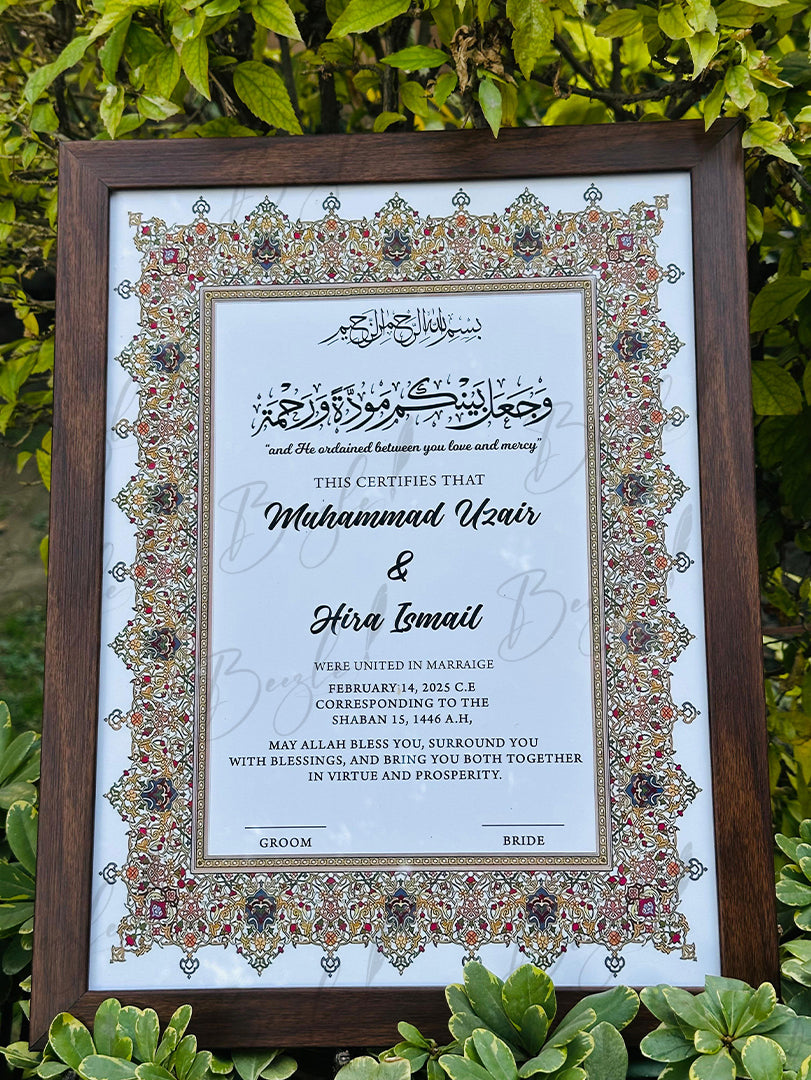 بسم الله الرحمن الرحيم
وَجَعَلَ بَيْنَكُم مَّوَدَّةً وَرَحْمَةً
"and He ordained between you love and mercy"
THIS CERTIFIES THAT
Muhammad Uzair
&
Hira Ismail
WERE UNITED IN MARRAIGE
FEBRUARY 14, 2025 C.E
CORRESPONDING TO THE
SHABAN 15, 1446 A.H,
MAY ALLAH BLESS YOU, SURROUND YOU
WITH BLESSINGS, AND BRING YOU BOTH TOGETHER
IN VIRTUE AND PROSPERITY.
GROOM BRIDE